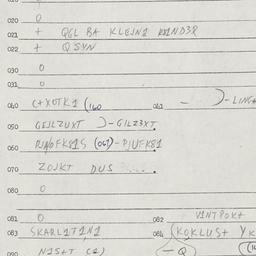 020 0
021 + QGL BA KLEINE KIND3R
022 + QSYN
030 0
031 0
040 C+XOTK1 (160 041 - )-LING+
050 GEILZUXT )-GILZ3XT
060 (067)-PJUFK81
070 ZOJKT DUS
080 0
081 0 082 VINTPOKT
083 SKARL1T1N1 084 (KOKLUS+ YK
090 N1S+T (2) -Q